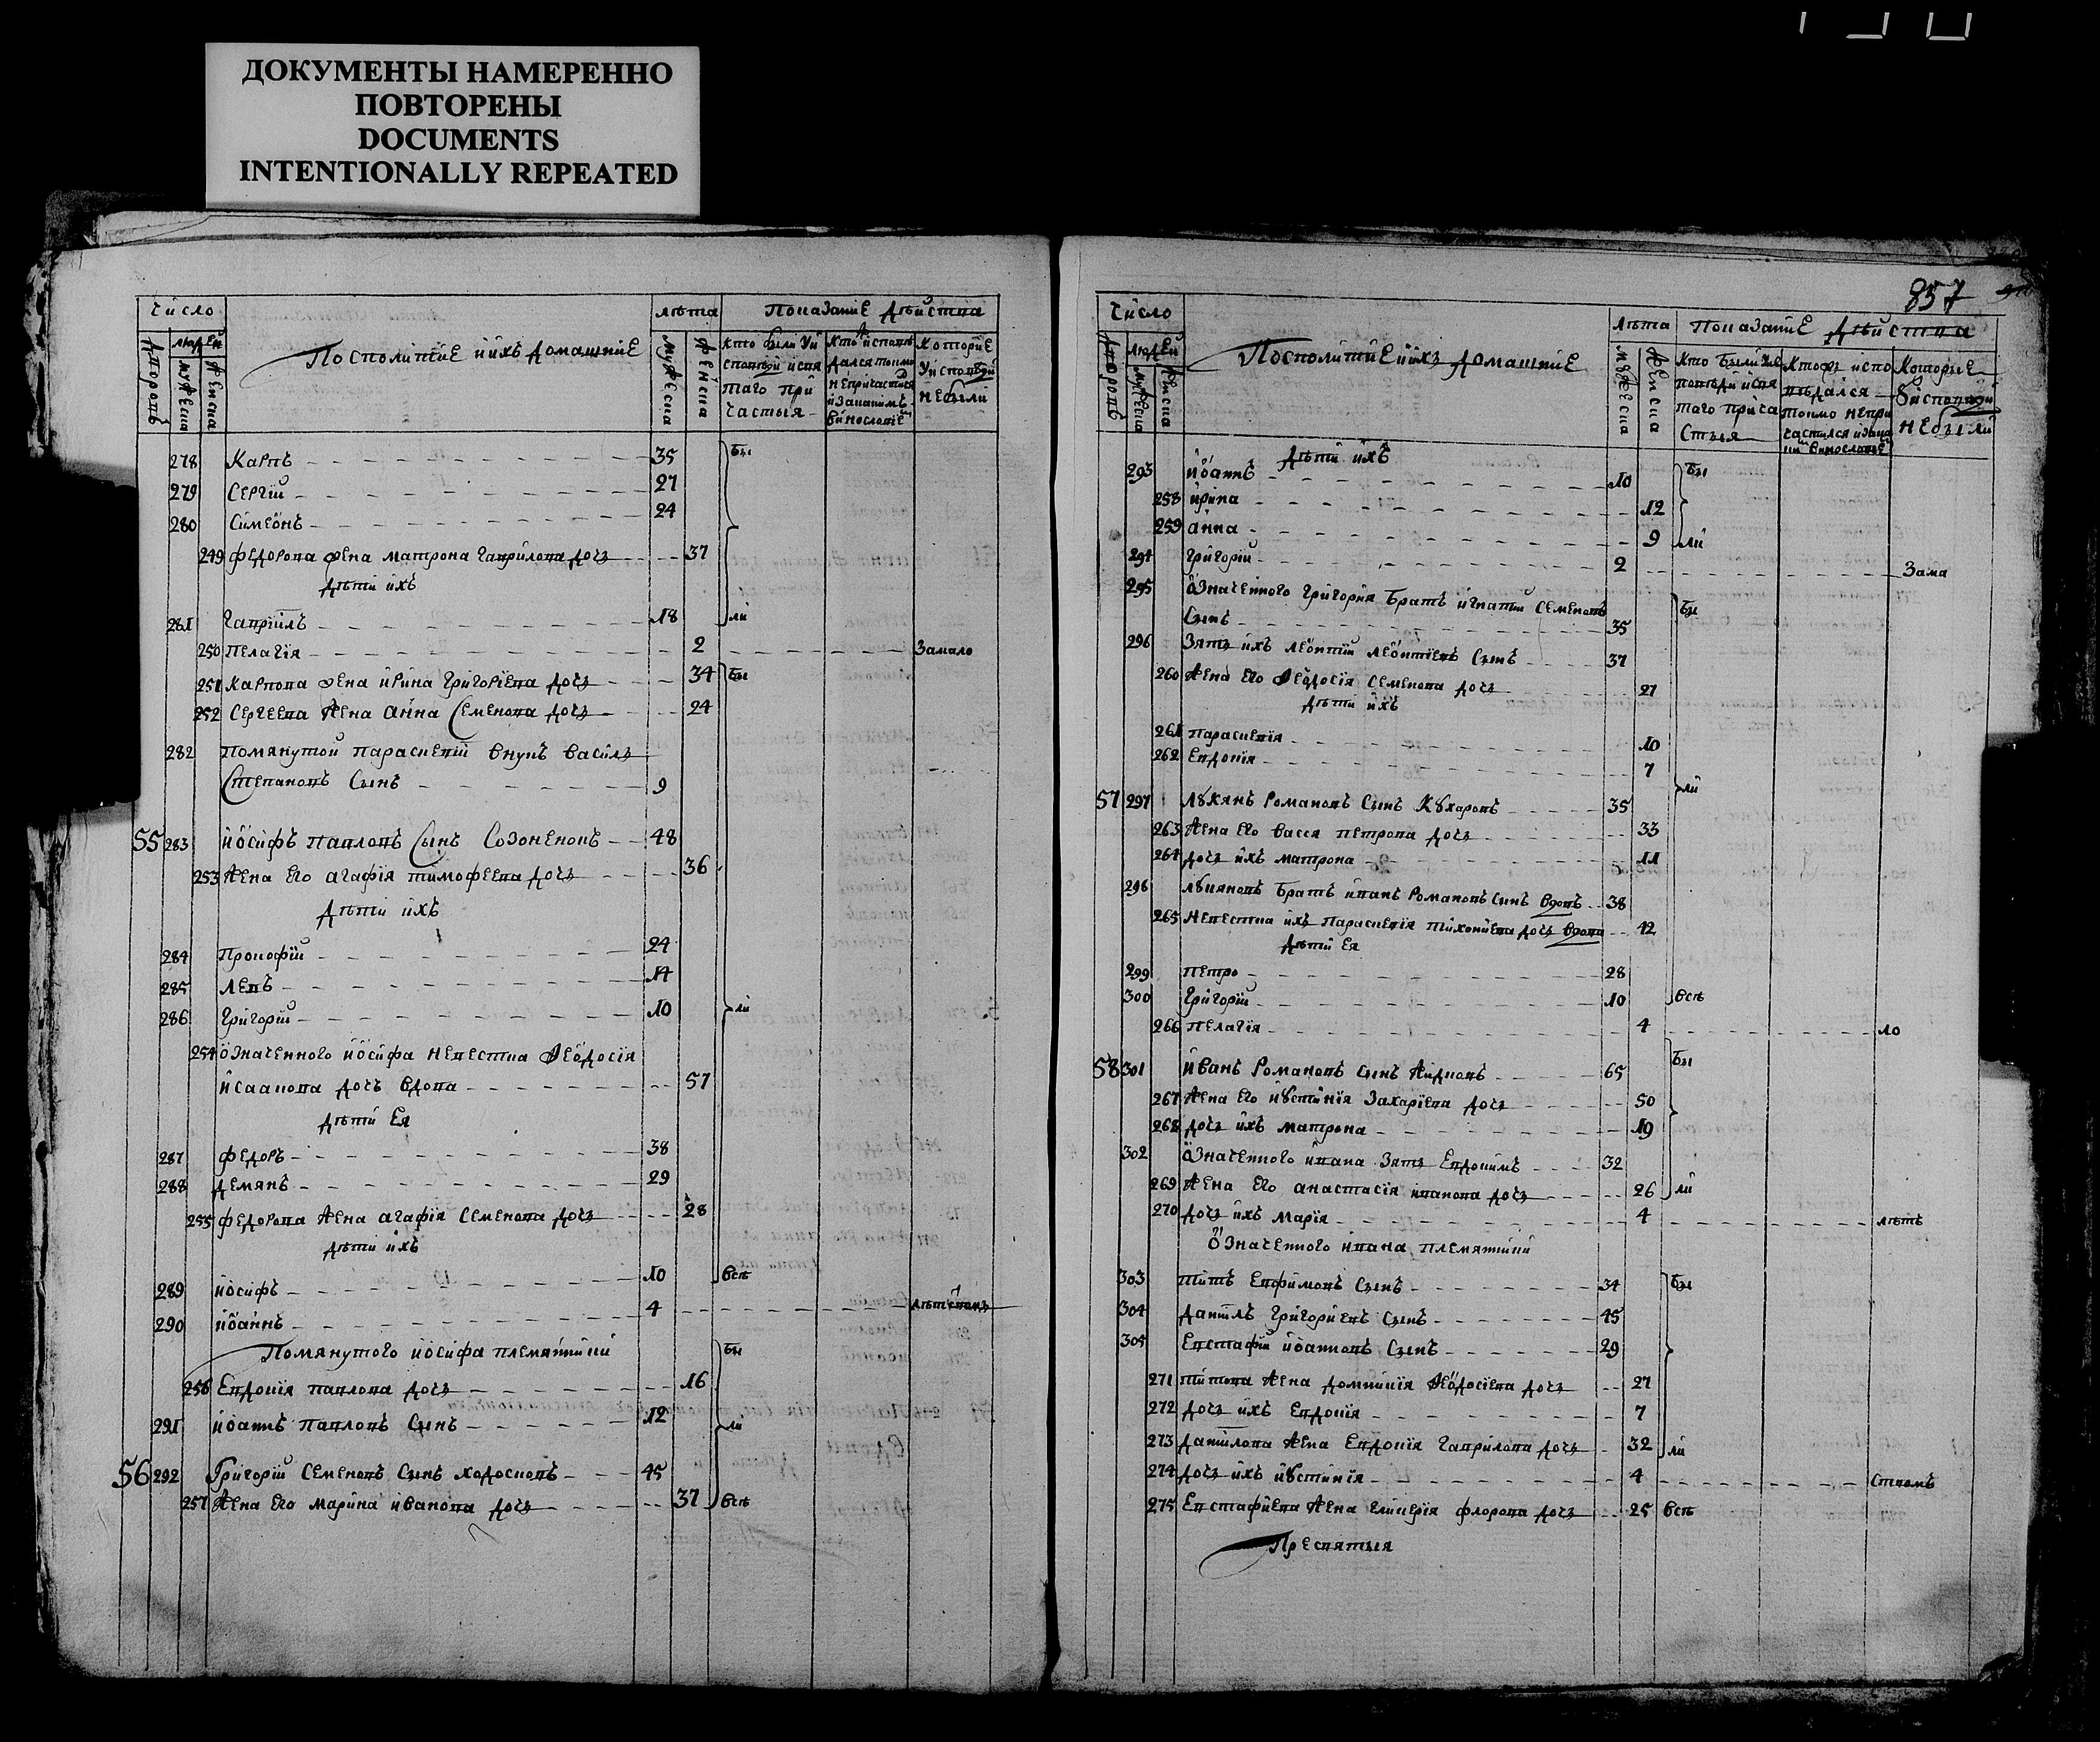 ДОКУМЕНТЫ НАМЕРЕННО
ПОВТОРЕНЫ
DOCUMENTS
INTENTIONALLY REPEATED
число
Посполитие и ихъ домашние
лѣта
Показание дѣйства
дворовъ
людей
мужеска
женска
мужеска
женска
278 Карпъ 35 Бы
279 Сергій 27
280 Симеонъ 24
249 Федорова жена Матрона Гаврилова дочь 37
дѣти ихъ
281 Гавріилъ 18 ли
250 Пелагія 2 Замало
251 Карпова жена Ирина Григоріева дочь 34 Бы
252 Сергеева жена Анна Семенова дочь 24
282 Помянутой Параскевіи внукъ Василь
Степановъ сынъ 9
55 283 Иосифъ Павловъ сынъ Созоненовъ 48
253 Жена его Агафія Тимофеева дочь 36
дѣти ихъ
284 Прокофій 24
285 Левъ 14
286 Григорій 10 ли
254 Означенного Иосифа невестка Феодосія
Исаакова дочь вдова 57
дѣти ея
287 Федоръ 38
288 Демянъ 29
255 Федорова жена Агафія Семенова дочь 28
дѣти ихъ
289 Иосифъ 10 всѣ
290 Иоаннъ 4
Помянутого Иосифа племянники Бы
256 Евдокія Павлова дочь 16
291 Иоаннъ Павловъ сынъ 12 ли
56 292 Григорій Семеновъ сынъ Ходосковъ 45
257 Жена его Марина Иванова дочь 37 всѣ
857
число
Посполитие и ихъ домашние
лѣта
Показание дѣйства
дворовъ
людей
мужеска
женска
мужеска
женска
дѣти ихъ
293 Иоаннъ 10 Бы
258 Ирина 12
259 Анна 9 ли
294 Григорій 2 Зама
295 Означенного Григорія братъ Игнатій Семеновъ Бы
сынъ 35
296 Зять ихъ Леонтій Леонтіевъ сынъ 37
260 Жена его Феодосія Семенова дочь 27
дѣти ихъ
261 Параскевія 10
262 Евдокія 7
ли
57 297 Лукянъ Романовъ сынъ Кухаровъ 35
263 Жена его Васся Петрова дочь 33
264 дочь ихъ Матрона 11
298 Лукяновъ братъ Иванъ Романовъ сынъ вдовъ 38
265 Невестка ихъ Параскевія Тихониева дочь вдова 42
дѣти ея
299 Петро 28
300 Григорій 10 всѣ
266 Пелагія 4 ло
58 301 Иванъ Романовъ сынъ Жидковъ 65 Бы
267 Жена его Иустинія Захаріева дочь 50
268 дочь ихъ Матрона 19
302 Означенного Ивана зять Евдокимъ 32
269 Жена его Анастасія Иванова дочь 26 ли
270 дочь ихъ Марія 4 лѣтъ
Означенного Ивана племянники
303 Титъ Евфимовъ сынъ 34 Бы
304 Даніилъ Григориевъ сынъ 45
305 Евстафій Иоанновъ сынъ 29
271 Титова жена Домникія Феодосіева дочь 27
272 дочь ихъ Евдокія 7
273 Данилова жена Евдокія Гаврилова дочь 32 ли
274 дочь ихъ Иустинія 4 ствомъ
275 Евстафиева жена Гликерія Флорова дочь 25 всѣ
Пресвятыя